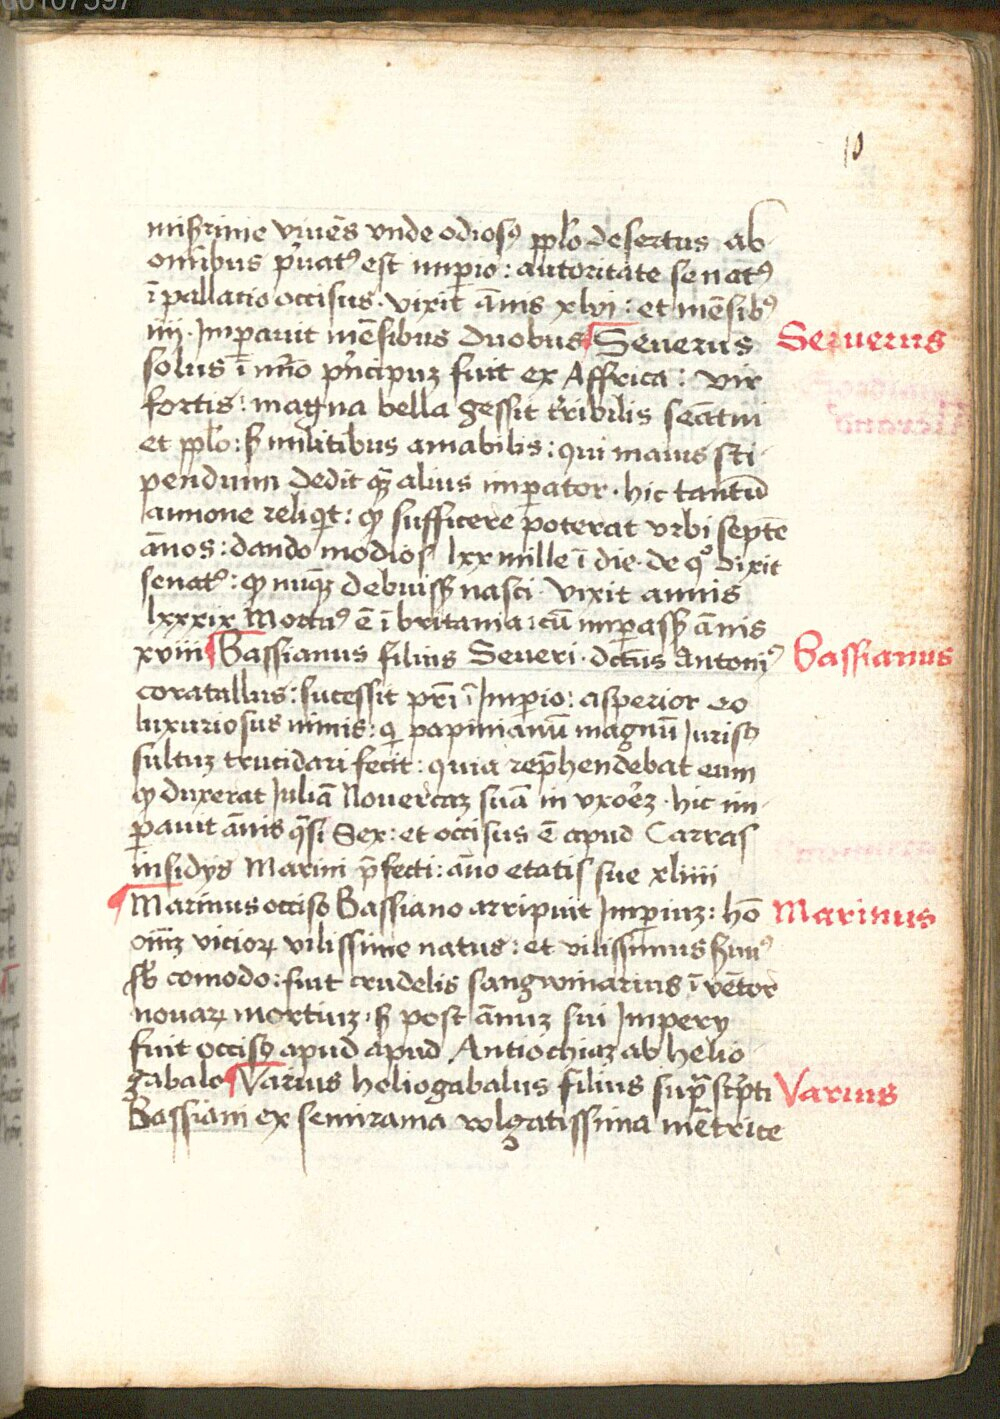 10
miẞrime viuēs vnde odiosꝰ pplo desertus ab
omībus pͥuatꝰ est imꝑio : autoritate senatꝰ
ī pallatio occisus · vixit ānis xlvi : et mēsibꝰ
iiii · Imꝑauit mēsibus duobus Seuerus
Seruerus
solus ī nūo pͥncipuʒ fuit ex Affrica : vir
fortis : magna bella gessit tͥribilis seātui
et pplo : ẞ militibus amabilis : qui maius sti
pendium dedit qʒ alius imꝑator · hic tantū
annone reliqͥt : ꝙ sufficere poterat vrbi septē
ānos : dando modios lxx mille ī die · de qͦ dixit
senatꝰ : ꝙ nuqʒ debuisẞ nasci · vixit annis
lxxxix Mortuꝰ ē ī britania : cū imꝑasẞ ānis
xviii Bassianus filius Seueri · dctūs Antoniꝰ
Bassianus
coratallus : sucessit pr̄i ī Imꝑio : asperior eo
luxuriosus nimis : qͥ papinianū magnū Jurisↄ
sultuʒ trucidari fecit : quia rep̄hendebat eum
ꝙ duxerat Juliā Nouercaʒ suā in vxoreʒ · hic im
ꝑauit ānis qͣsi Sex : et occisus ē apud Carras
insidijs Marini p̄fecti : āno etatis sue xliiii
Marinus occiso Bassiano arripuit Imꝑiuʒ : hō
Marinus
omīʒ vicioꝝ vilissime natus : et vilissimus
sb̄ comodo : fuit crudelis sangwinarius ī vētor
nouaꝝ mortiuʒ · ẞ post ānuʒ sui Imperij
fuit occisꝰ apud apud Antiochiaʒ ab helio
gabalo Varius heliogabalus filius supͣ scp̄ti
Varius
Bassiani ex semirama wlgatissima mētrice